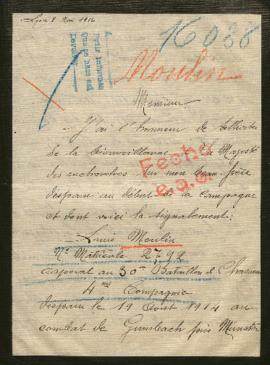 Lyon 8 Mai 1916
16036
Moulin
Monsieur
J'ai l'honneur de solliciter
de la bienveillance de Sa Majesté
des recherches sur mon beau-frère
disparu au début de la campagne
et dont voici le signalement:
Fecha
Louis Moulin
N° Matricule 2792
caporal au 30me Bataillon de Chasseurs
4me Compagnie
disparu le 19 Août 1914 au
combat de Gunsbach près Munster